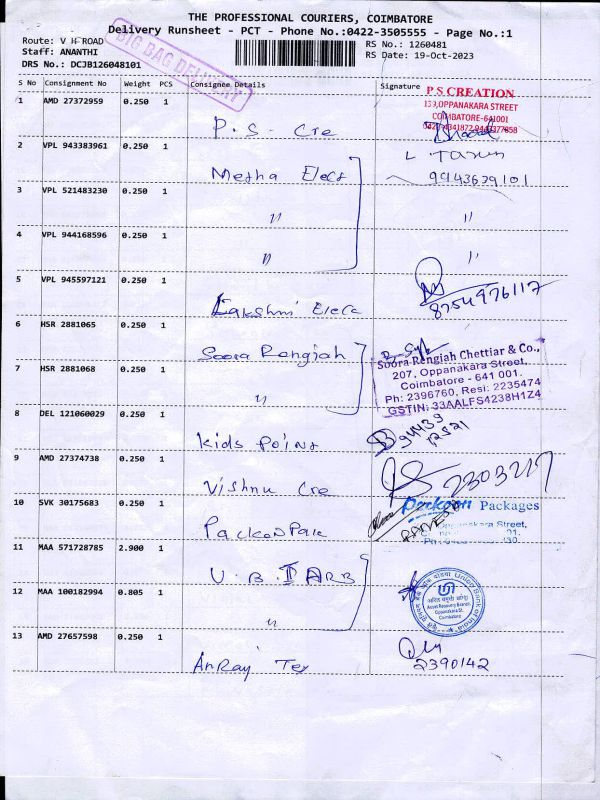 THE PROFESSIONAL COURIERS, COIMBATORE
Delivery Runsheet - PCT - Phone No.:0422-3505555 - Page No.:1
Route: V H ROAD
RS No.: 1260481
Staff: ANANTHI
RS Date: 19-Oct-2023
DRS No.: DCJB126048101
BIG BAG DELIVERY
S No Consignment No Weight PCS Consignee Details Signature
P.S.CREATION
133,OPPANAKARA STREET
COIMBATORE-641001
1 AMD 27372959 0.250 1 P.S - Cre
2 VPL 943383961 0.250 1 Metha Elect
Tarun
9943639101
3 VPL 521483230 0.250 1 〃 〃
4 VPL 944168596 0.250 1 〃 〃
5 VPL 945597121 0.250 1 Lakshmi Elect
8754976117
6 HSR 2881065 0.250 1 Soora Rengiah
Soora Rengiah Chettiar & Co.,
207, Oppanakara Street,
Coimbatore - 641 001.
Ph: 2396760, Resi: 2235474
GSTIN: 33AALFS4238H1Z4
7 HSR 2881068 0.250 1 〃
8 DEL 121060029 0.250 1 Kids Point
94439
12521
9 AMD 27374738 0.250 1 Vishnu Cre
2303217
10 SVK 30175683 0.250 1 Packon Pak
Packoon Packages
Oppanakara Street,
11 MAA 571728785 2.900 1 U.B.I ARB
12 MAA 100182994 0.805 1 〃
Union Bank of India
Asset Recovery Branch
Oppanakara St.
Coimbatore
13 AMD 27657598 0.250 1 AnRaj Tex
2390142